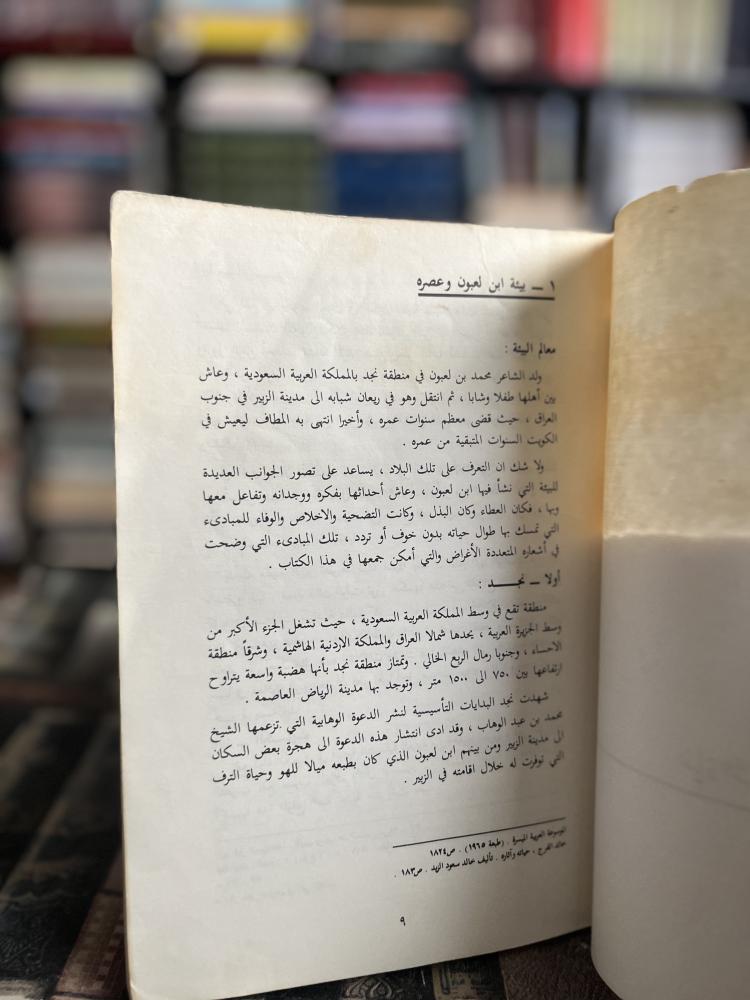 ١ ــ بيئة ابن لعبون وعصره
معالم البيئة :
ولد الشاعر محمد بن لعبون في منطقة نجد بالمملكة العربية السعودية ، وعاش
بين أهلها طفلا وشابا ، ثم انتقل وهو في ريعان شبابه الى مدينة الزبير في جنوب
العراق ، حيث قضى معظم سنوات عمره ، وأخيرا انتهى به المطاف ليعيش في
الكويت السنوات المتبقية من عمره .
ولا شك ان التعرف على تلك البلاد ، يساعد على تصور الجوانب العديدة
للبيئة التي نشأ فيها ابن لعبون ، وعاش أحداثها بفكره ووجدانه وتفاعل معها
وبها ، فكان العطاء وكان البذل ، وكانت التضحية والاخلاص والوفاء للمبادىء
التي تمسك بها طوال حياته بدون خوف أو تردد ، تلك المبادىء التي وضحت
في أشعاره المتعددة الأغراض والتي أمكن جمعها في هذا الكتاب .
أولا ــ نجــــد :
منطقة تقع في وسط المملكة العربية السعودية ، حيث تشغل الجزء الأكبر من
وسط الجزيرة العربية ، يحدها شمالا العراق والمملكة الاردنية الهاشمية ، وشرقاً منطقة
الاحساء ، وجنوبا رمال الربع الخالي . وتمتاز منطقة نجد بأنها هضبة واسعة يتراوح
ارتفاعها بين ٧٥٠ الى ١٥٠٠ متر ، وتوجد بها مدينة الرياض العاصمة .
شهدت نجد البدايات التأسيسية لنشر الدعوة الوهابية التي تزعمها الشيخ
محمد بن عبد الوهاب ، وقد ادى انتشار هذه الدعوة الى هجرة بعض السكان
الى مدينة الزبير ومن بينهم ابن لعبون الذي كان بطبعه ميالا للهو وحياة الترف
التي توفرت له خلال اقامته في الزبير .
الموسوعة العربية الميسرة . (طبعة ١٩٦٥) . ص١٨٢٤
خالد الفرج ، حياته وآثاره . تأليف خالد سعود الزيد . ص١٨٣ .
٩